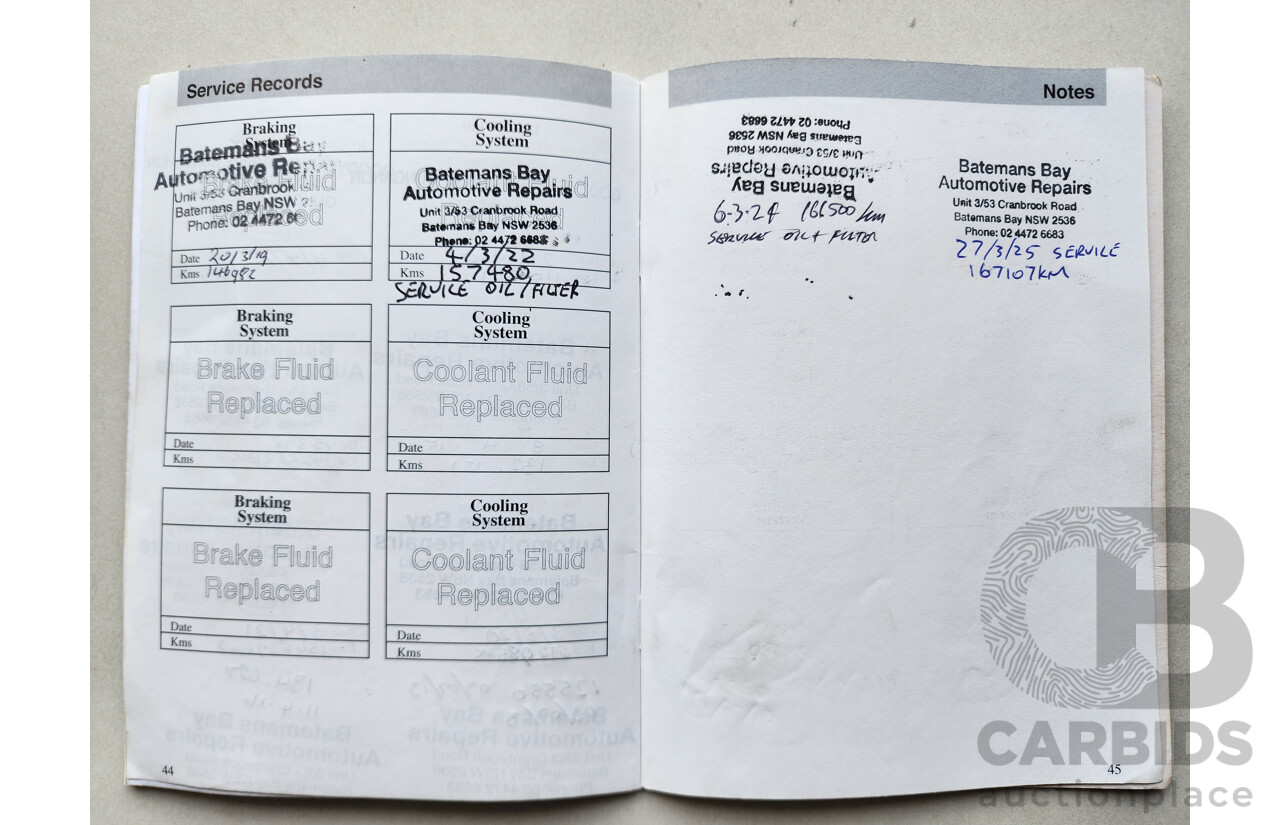 Service Records
Braking
System
Batemans Bay
Automotive Repairs
Brake Fluid
Replaced
Unit 3/53 Cranbrook
Batemans Bay NSW
Phone: 02 4472 66
Date 20/3/19
Kms 146982
Cooling
System
Coolant Fluid
Replaced
Batemans Bay
Automotive Repairs
Unit 3/53 Cranbrook Road
Batemans Bay NSW 2536
Phone: 02 4472 6683
Date 4/3/22
Kms 157480
SERVICE OIL/FILTER
Braking
System
Brake Fluid
Replaced
Date
Kms
Cooling
System
Coolant Fluid
Replaced
Date
Kms
Braking
System
Brake Fluid
Replaced
Date
Kms
Cooling
System
Coolant Fluid
Replaced
Date
Kms
44
Notes
Batemans Bay
Automotive Repairs
Unit 3/53 Cranbrook Road
Batemans Bay NSW 2536
Phone: 02 4472 6683
6-3-24 166500 km
SERVICE OIL + FILTER
Batemans Bay
Automotive Repairs
Unit 3/53 Cranbrook Road
Batemans Bay NSW 2536
Phone: 02 4472 6683
27/3/25 SERVICE
167107KM
45
CARBIDS
auctionplace